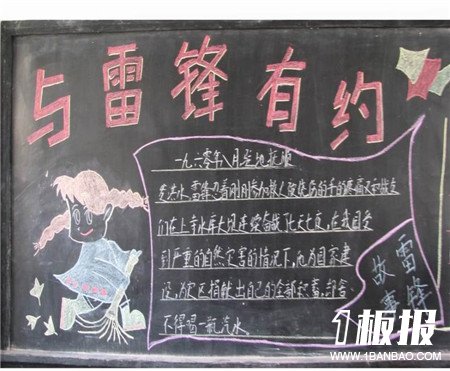 与雷锋有约
一九六零年八月
发洪水,雷锋忍着刚刚参加救人
们在上寺水库大坝连续奋战七天七夜,在我国受
到严重的自然灾害的情况下,他为国家建
设,为灾区捐献出自己的全部积蓄,却舍
不得喝一瓶汽水
雷锋
故事
1板报
WWW.1BANBAO.COM